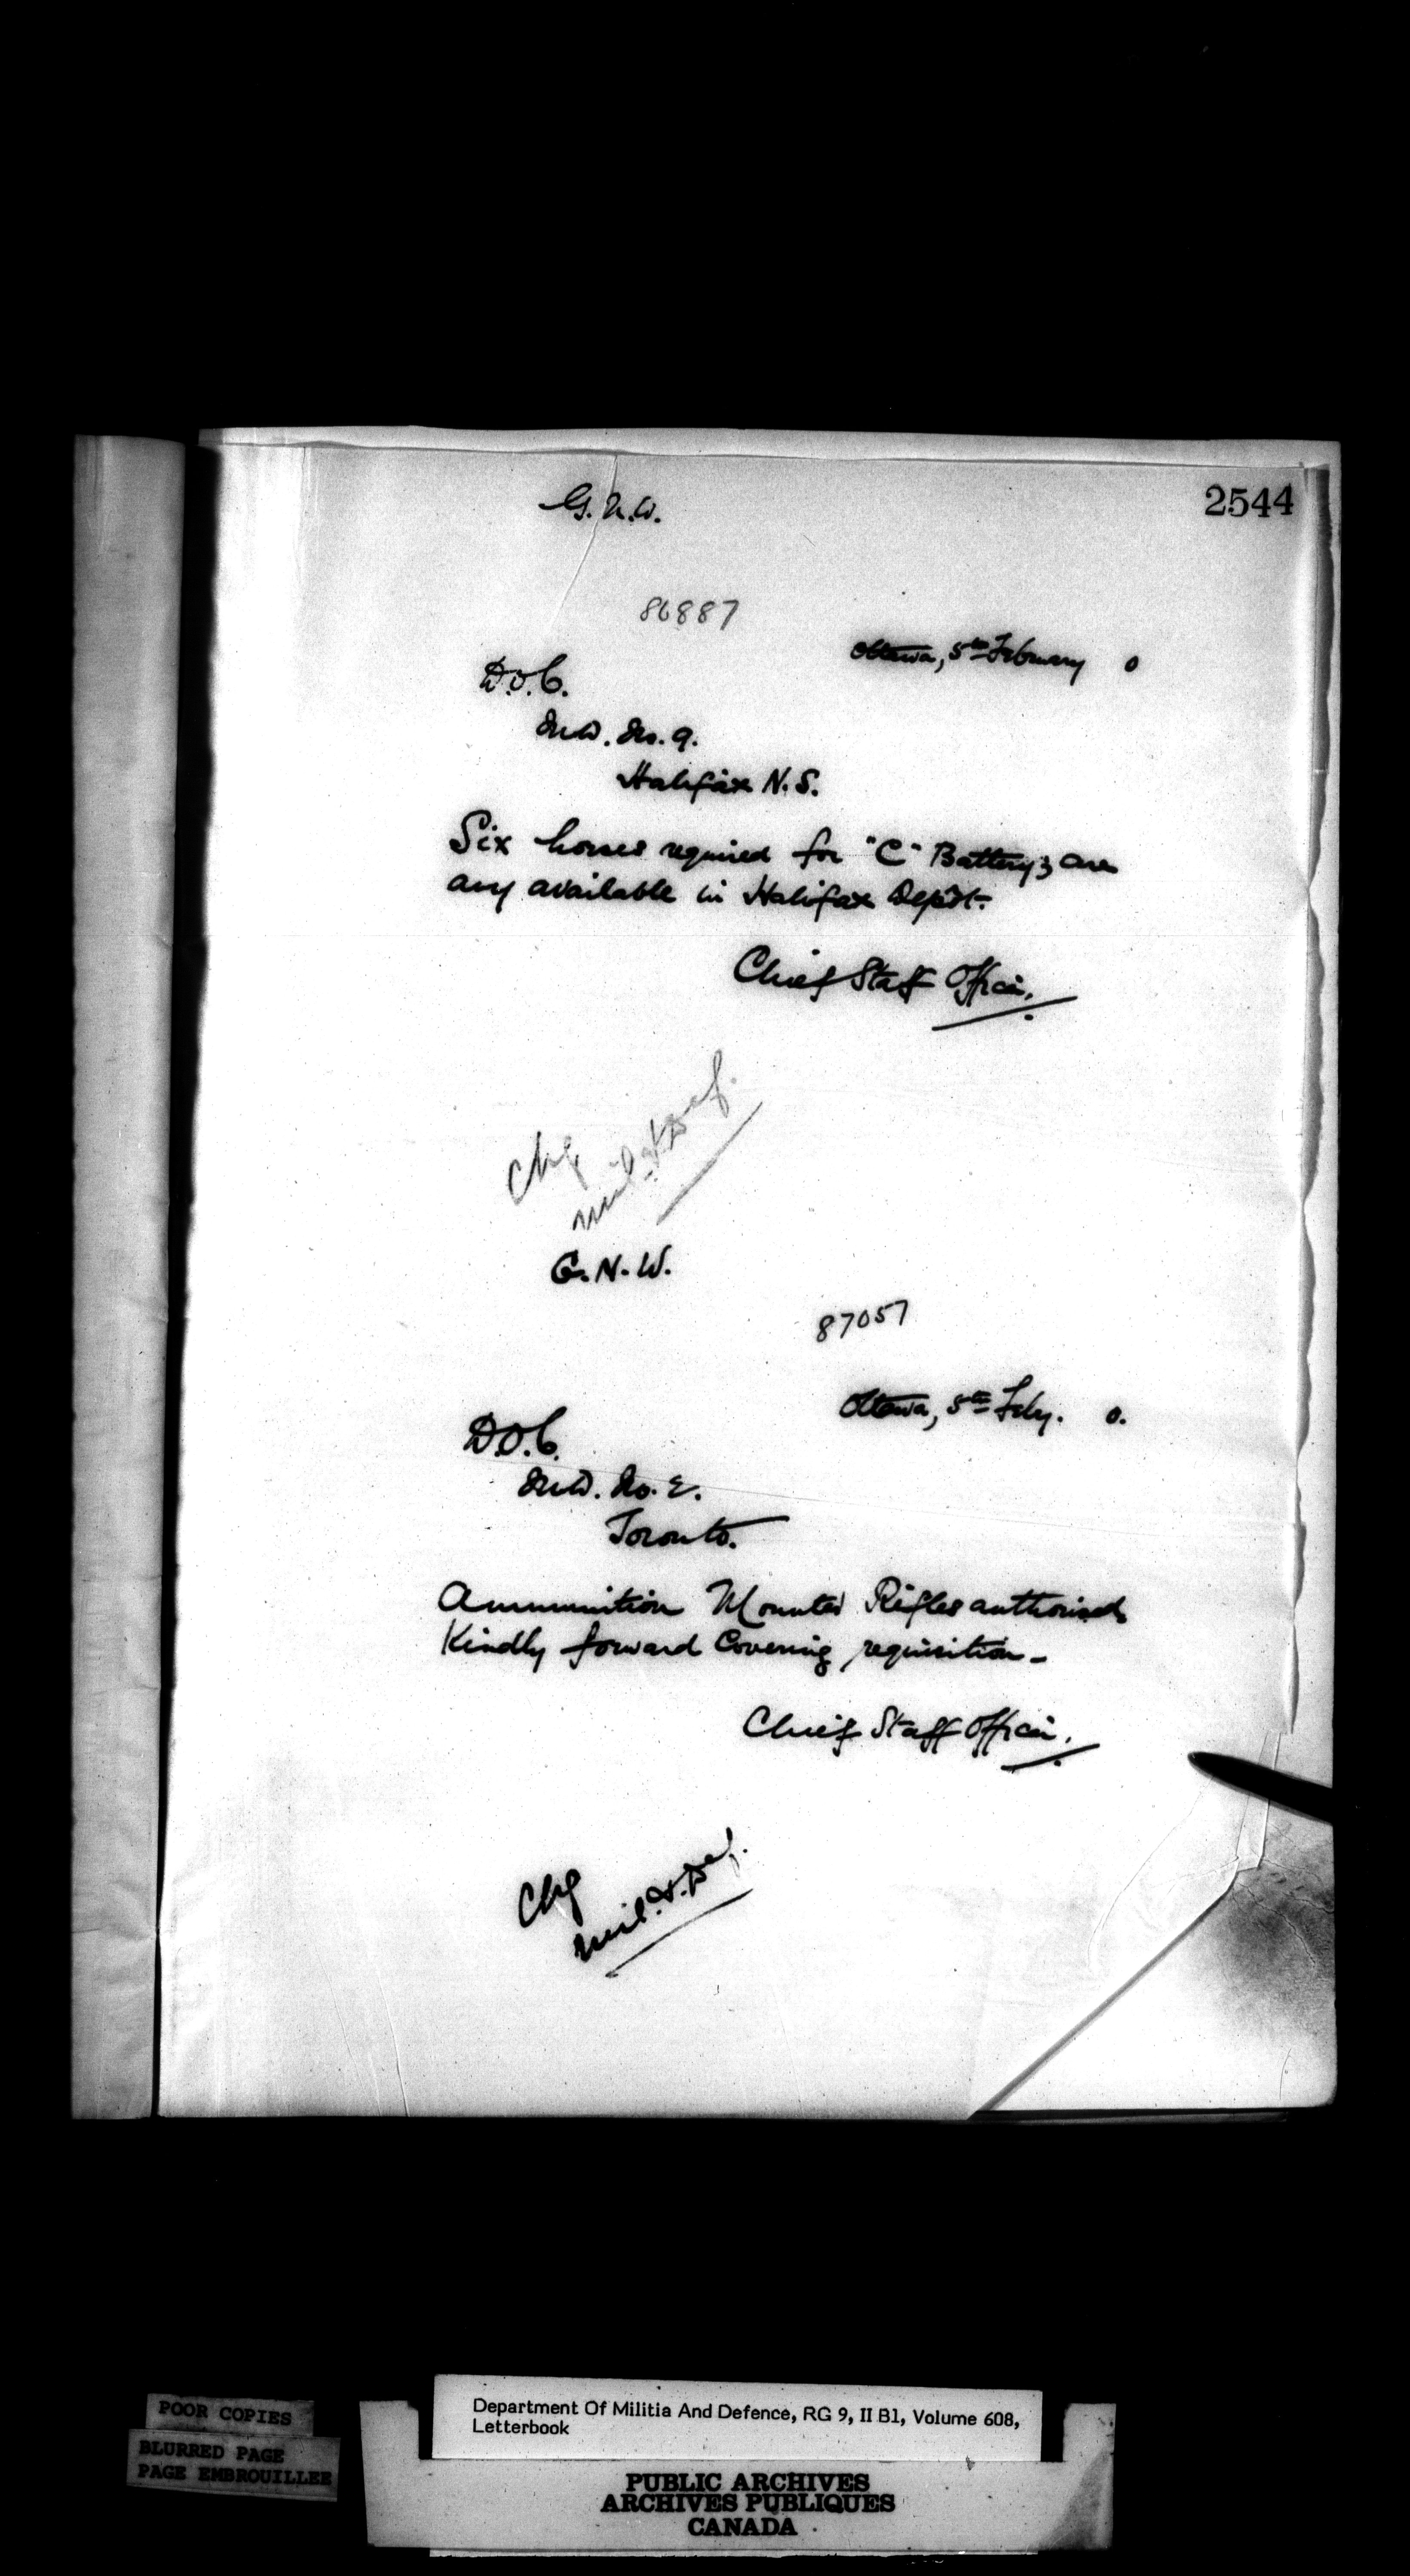 2544
G.N.W.
86887
Ottawa, 5th February 0
D.O.C.
M.D. No. 9.
Halifax N.S.
Six horses required for "C" Battery; are
any available in Halifax Depôt.
Chief Staff Officer.
Chg
Mil. & Def.
G.N.W.
87057
Ottawa, 5th Feby. 0.
D.O.C.
M.D. No. 2.
Toronto.
Ammunition Mounted Rifles authorised,
Kindly forward Covering requisition -
Chief Staff Officer.
Chg
Mil. & Def.
POOR COPIES
BLURRED PAGE
PAGE EMBROUILLEE
Department Of Militia And Defence, RG 9, II B1, Volume 608,
Letterbook
PUBLIC ARCHIVES
ARCHIVES PUBLIQUES
CANADA